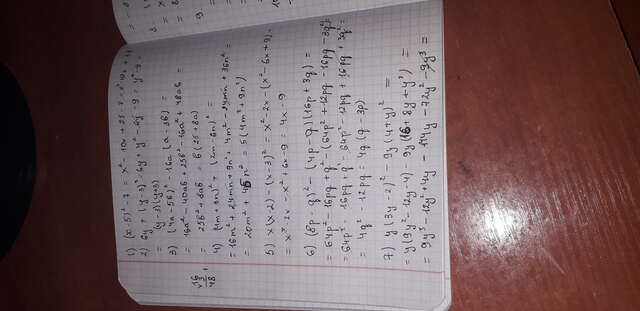 1) (x-5)² - 7 = x² - 10x + 25 - 7 = x² - 10x + 18
2) 6y + (y-3)² = 6y + y² - 6y - 9 = y² - 9 =
= (y-3)(y+3)
3) (4a-5b)² - 16a (a-3b) =
= 16a² - 40ab + 25b² - 16a² + 48ab =
= 25b² + 8ab = b(25+8a)
4) (4m+3n)² + (2m-6n)² =
= 16m² + 24mn + 9n² + 4m² - 24mn + 36n² =
= 20m² + 45n² = 5(4m²+9n²)
5) x(x-2) - (x-3)² = x² - 2x - (x² - 6x + 9) =
= x² - 2x - x² + 6x - 9 = 4x - 9
6) (8p-q)² - (4p-q)(16p+3q) =
= 64p² - 16pq + q² - (64p² + 12pq - 16pq - 3q²)
= 64p² - 16pq + q² - 64p² - 12pq + 16pq + 3q² =
= 4q² - 12pq = 4q (q-3p)
7) y(3y-2)² - 9y(4+y)² =
= y(9y² - 12y - 4) - 9y(16 + 8y + y²) =
= 9y³ - 12y² + 4y - 144y - 72y² - 9y³ =